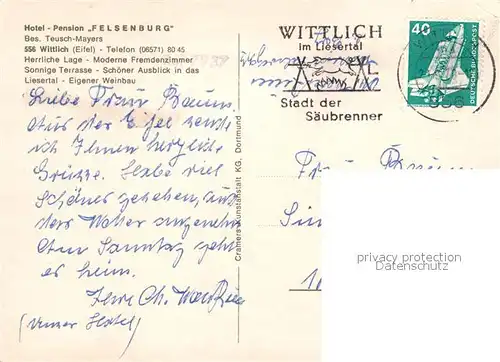 Hotel - Pension „FELSENBURG"
Bes. Teusch-Mayers
556 Wittlich (Eifel) - Telefon (06571) 80 45
Herrliche Lage - Moderne Fremdenzimmer
Sonnige Terrasse - Schöner Ausblick in das
Liesertal - Eigener Weinbau
Liebe Frau Braun,
Aus der Eifel sende
ich Ihnen herzliche
Grüsse. Habe viel
Schönes gesehen, auch
das Wetter angenehm
Am Sonntag geht
es heim.
Ihre Ch.
(unser Hotel)
Cramers Kunstanstalt KG, Dortmund
WITTLICH
im Liesertal
Stadt der
Säubrenner
40
DEUTSCHE BUNDESPOST
556
Frau Braun
privacy protection
Datenschutz